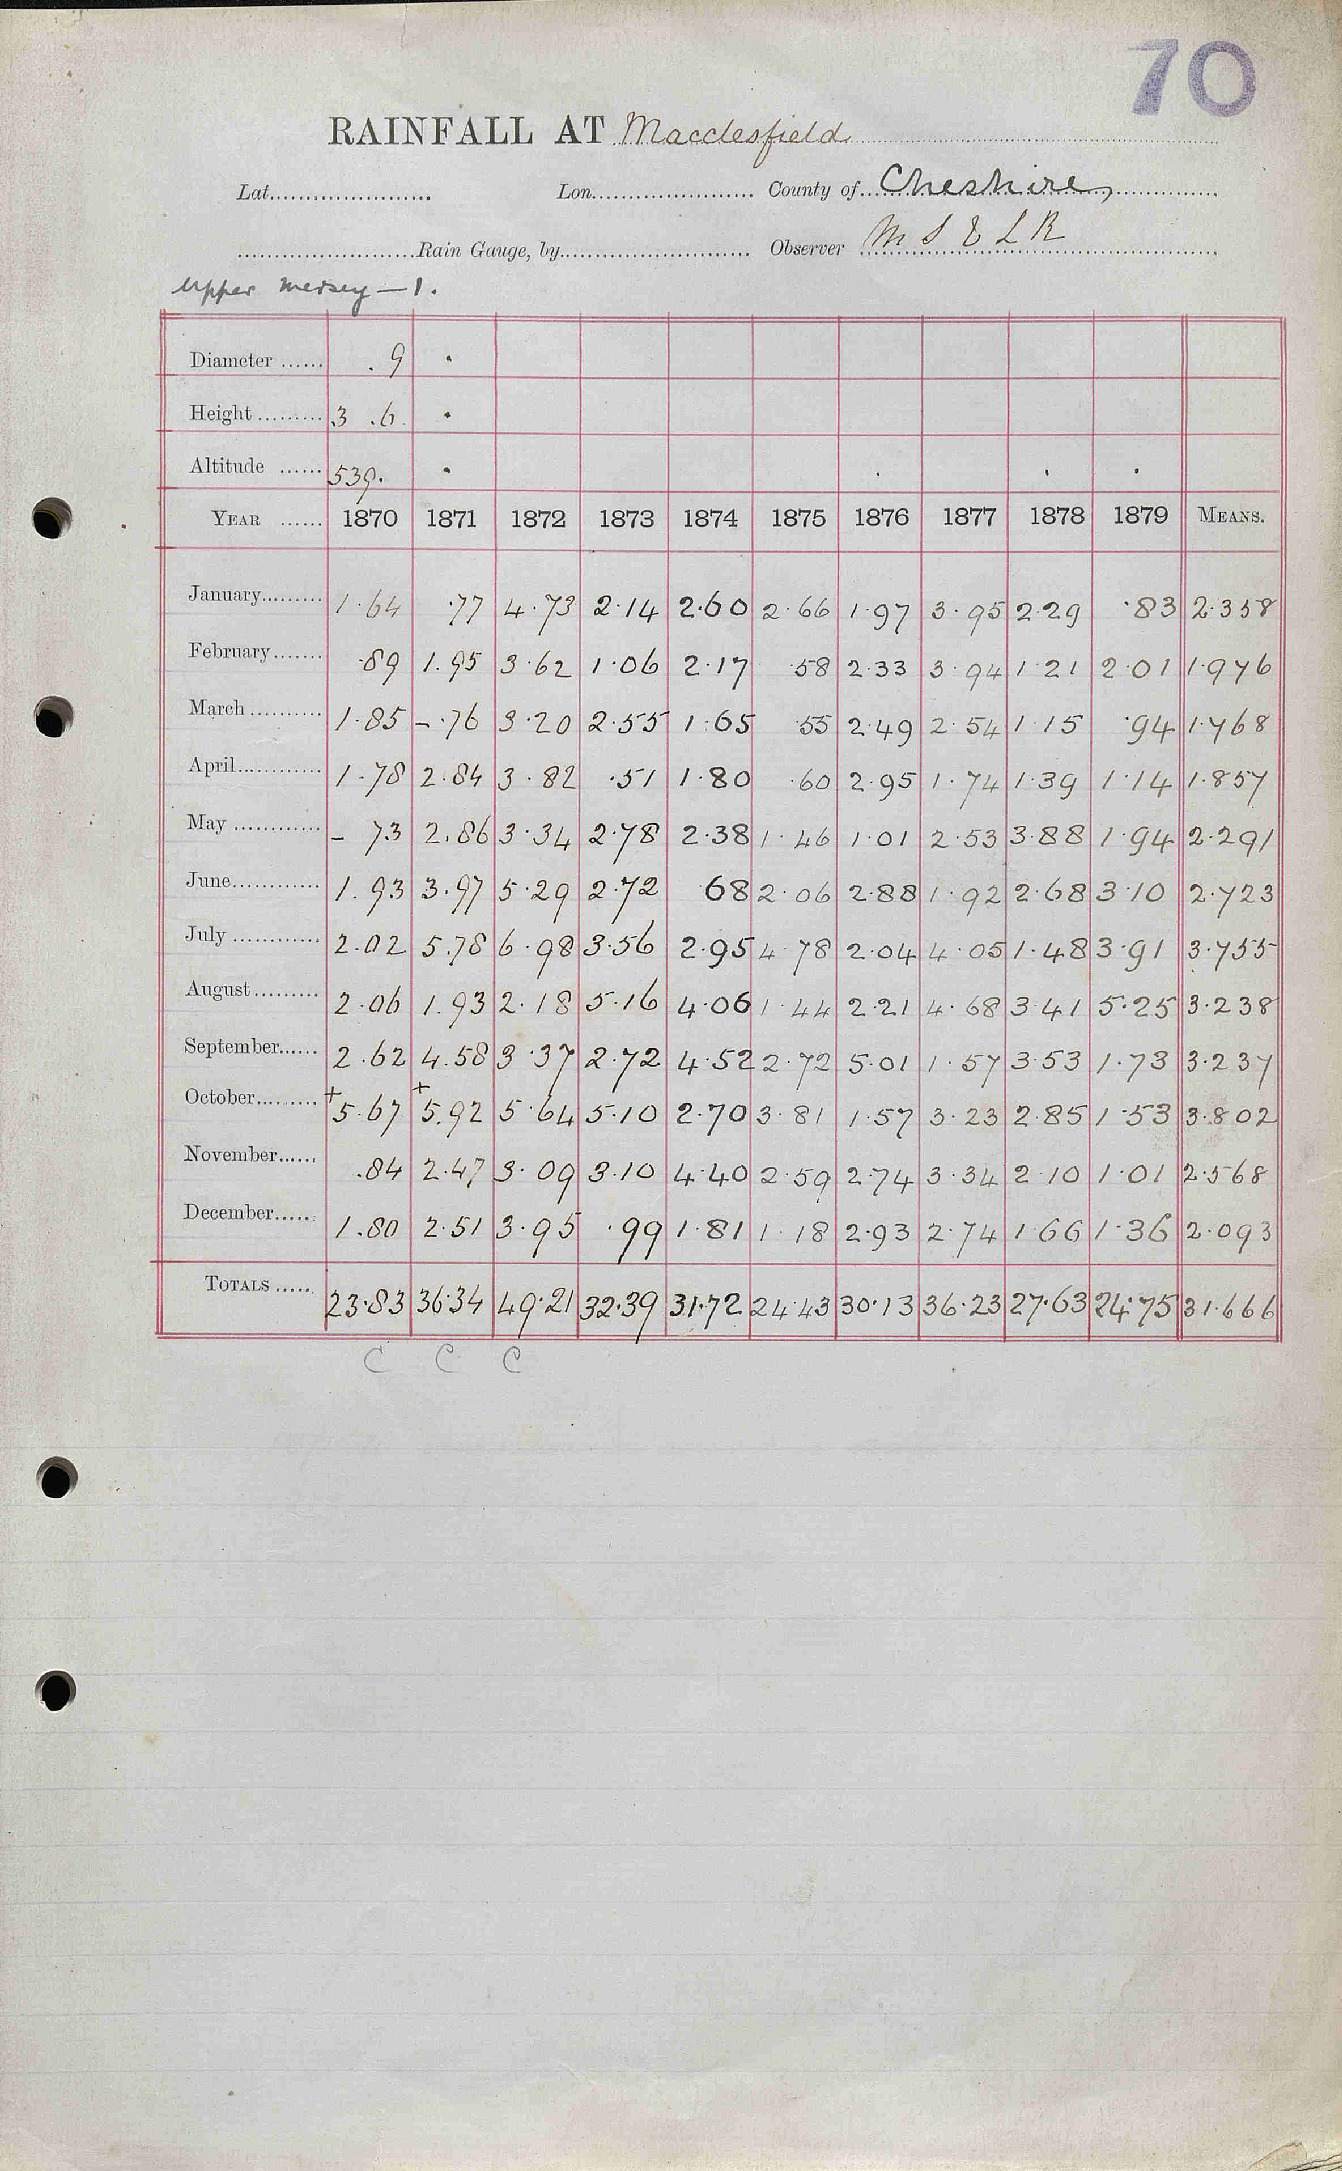 70
RAINFALL AT Macclesfield
Lat. Lon. County of Cheshire,
Rain Gauge, by Observer M S & L R
Upper Mersey — 1.
Diameter .9 .
Height 3 .6 .
Altitude 539. . . . .
YEAR 1870 1871 1872 1873 1874 1875 1876 1877 1878 1879 MEANS.
January 1.64 .77 4.73 2.14 2.60 2.66 1.97 3.95 2.29 .83 2.358
February .89 1.95 3.62 1.06 2.17 .58 2.33 3.94 1.21 2.01 1.976
March 1.85 - .76 3.20 2.55 1.65 .55 2.49 2.54 1.15 .94 1.768
April 1.78 2.84 3.82 .51 1.80 .60 2.95 1.74 1.39 1.14 1.857
May - 73 2.86 3.34 2.78 2.38 1.46 1.01 2.53 3.88 1.94 2.291
June 1.93 3.97 5.29 2.72 68 2.06 2.88 1.92 2.68 3.10 2.723
July 2.02 5.78 6.98 3.56 2.95 4.78 2.04 4.05 1.48 3.91 3.755
August 2.06 1.93 2.18 5.16 4.06 1.44 2.21 4.68 3.41 5.25 3.238
September 2.62 4.58 3.37 2.72 4.52 2.72 5.01 1.57 3.53 1.73 3.237
October +5.67 +5.92 5.64 5.10 2.70 3.81 1.57 3.23 2.85 1.53 3.802
November .84 2.47 3.09 3.10 4.40 2.59 2.74 3.34 2.10 1.01 2.568
December 1.80 2.51 3.95 .99 1.81 1.18 2.93 2.74 1.66 1.36 2.093
TOTALS 23.83 36.34 49.21 32.39 31.72 24.43 30.13 36.23 27.63 24.75 31.666
C C C